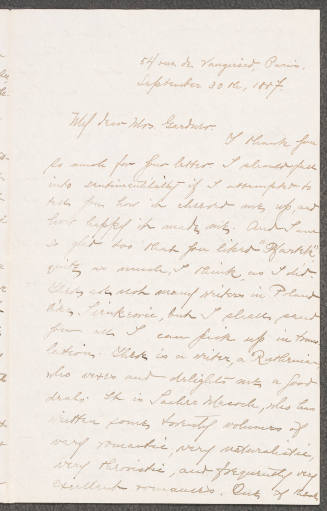 54 rue de Vaugirard, Paris.
September 30th, 1887.
My dear Mrs. Gardner.
I thank you
so much for your letter. I should fall
into sentimentality if I attempted to
tell you how it cheered me up, and
how happy it made me. And I am
so glad too that you liked
quite as much, I think, as I did.
There are not many writers in Poland
like Sienkiewicz, but I shall send
you all I can pick up in trans
lation. There is a writer, a Ruthenian
who vexes and delights me a good
deal. It is Sacher Masoch, who has
written some twenty volumes of
very romantic, very naturalistic,
very and frequently very
excellent romances. One of these